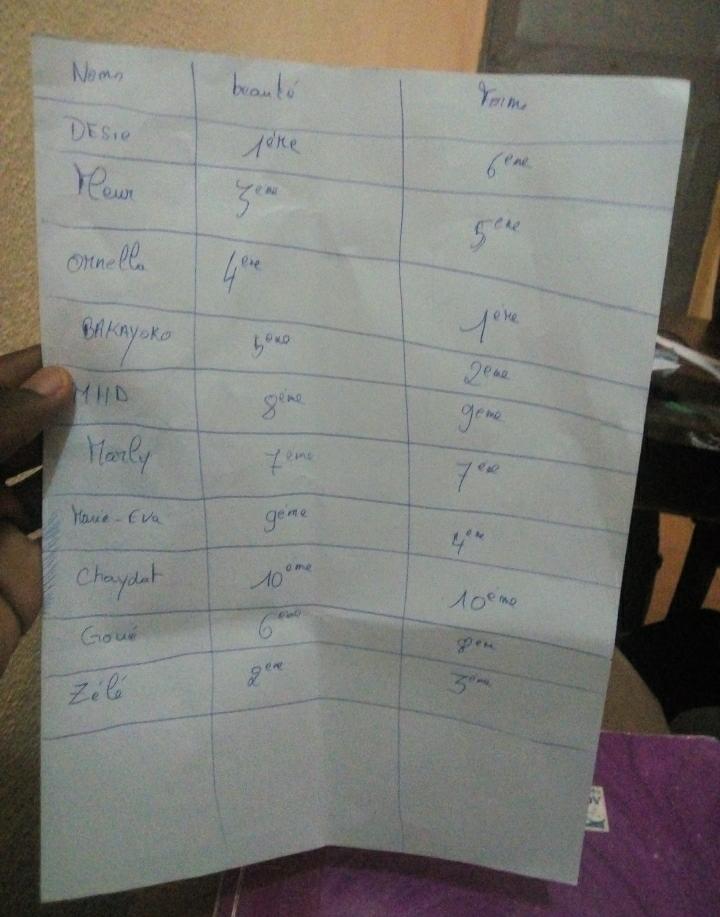 Noms beauté Forme
DESIE 1ère 6eme
Fleur 3eme 5eme
Ornella 4eme 1ère
BAKAYOKO 5eme 2eme
MHD 8eme 9eme
Marly 7eme 7eme
Marie-Eva 9eme 4eme
Chaydat 10eme 10ème
Goué 6eme 8eme
Zélé 2eme 3eme